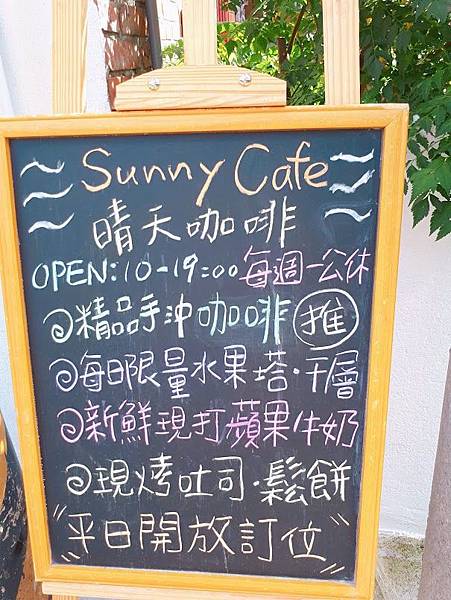 Sunny Cafe
晴天咖啡
OPEN:10-19:00 每週一公休
精品手沖咖啡 推
每日限量水果塔·千層
新鮮現打蘋果牛奶
現烤吐司·鬆餅
"平日開放訂位"